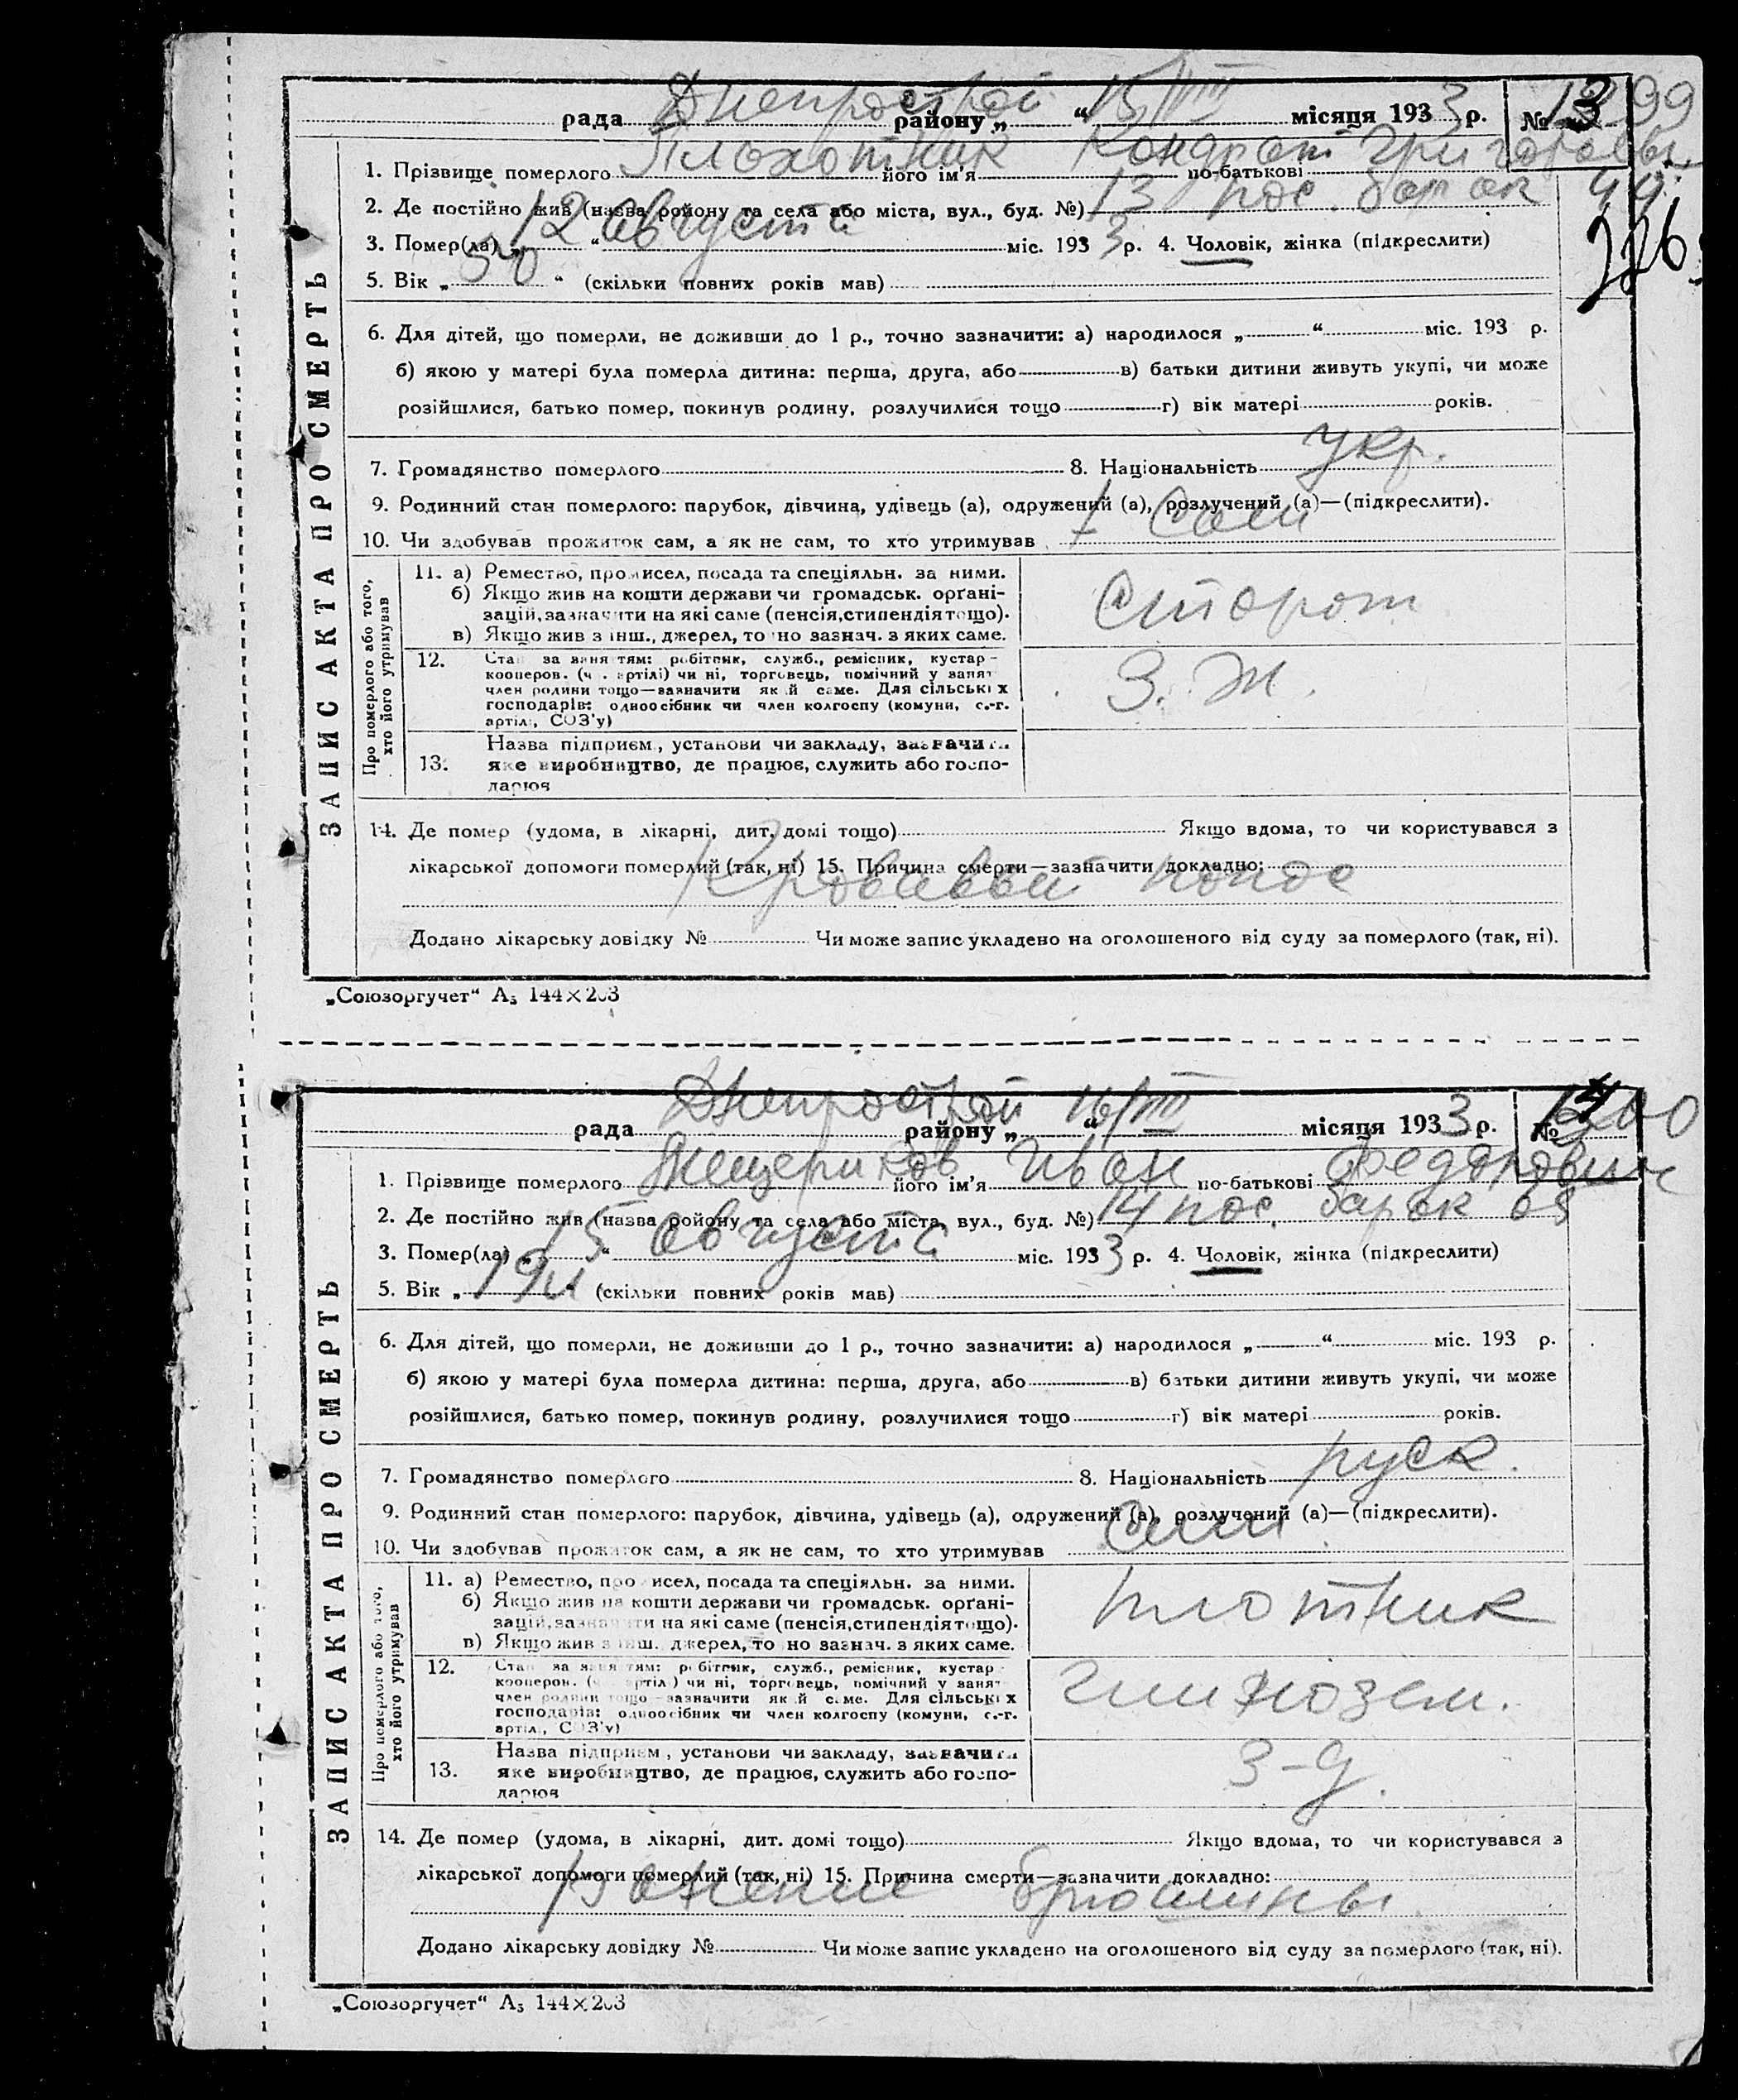 рада Днепрострой району „ 15/VIII “ місяця 1933 р. № 13
1. Прізвище померлого Плохотник його ім'я Кондрат по-батькові Григорьев.
2. Де постійно жив (назва ройону та села або міста, вул., буд. №) 13 пос. барак 44.
3. Помер(ла) „ 12 “ августа міс. 1933 р. 4. Чоловік, жінка (підкреслити)
5. Вік „ 50 “ (скільки повних років мав)
6. Для дітей, що померли, не доживши до 1 р., точно зазначити: а) народилося „ “ міс. 193 р.
б) якою у матері була померла дитина: перша, друга, або в) батьки дитини живуть укупі, чи може
розійшлися, батько помер, покинув родину, розлучилися тощо г) вік матері років.
7. Громадянство померлого 8. Національність укр.
9. Родинний стан померлого: парубок, дівчина, удівець (а), одружений (а), розлучений (а)—(підкреслити).
10. Чи здобував прожиток сам, а як не сам, то хто утримував сам
ЗАПИС АКТА ПРО СМЕРТЬ
Про померлого або того,
хто його утримував
11. а) Ремество, промисел, посада та спеціяльн. за ними.
б) Якщо жив на кошти держави чи громадськ. орґані-
зацій, зазначити на які саме (пенсія, стипендія тощо).
в) Якщо жив з інш., джерел, точно зазнач. з яких саме.
Сторож
12. Стан за заняттям: робітник, служб., ремісник, кустар-
кооперов. (ч. артілі) чи ні, торговець, помічний у занят
член родини тощо—зазначити який саме. Для сільських
господарів: одноосібник чи член колгоспу (комуни, с.-г.
артілі, СОЗ'у)
З. Ж.
13. Назва підприєм., установи чи закладу, зазначити
яке виробництво, де працює, служить або госпо-
дарює
14. Де помер (удома, в лікарні, дит. домі тощо) Якщо вдома, то чи користувався з
лікарської допомоги померлий (так, ні) 15. Причина смерти—зазначити докладно:
Кровавый понос
Додано лікарську довідку № Чи може запис укладено на оголошеного від суду за померлого (так, ні).
„Союзоргучет“ А₅ 144×203
рада Днепрострой району „ 16/VIII “ місяця 1933 р. №
1. Прізвище померлого Мещеряков його ім'я Иван по-батькові Федорович
2. Де постійно жив (назва ройону та села або міста, вул., буд. №) 14 пос. барак 65
3. Помер(ла) „ 15 “ августа міс. 1933 р. 4. Чоловік, жінка (підкреслити)
5. Вік „ 19 “ (скільки повних років мав)
6. Для дітей, що померли, не доживши до 1 р., точно зазначити: а) народилося „ “ міс. 193 р.
б) якою у матері була померла дитина: перша, друга, або в) батьки дитини живуть укупі, чи може
розійшлися, батько помер, покинув родину, розлучилися тощо г) вік матері років.
7. Громадянство померлого 8. Національність руск.
9. Родинний стан померлого: парубок, дівчина, удівець (а), одружений (а), розлучений (а)—(підкреслити).
10. Чи здобував прожиток сам, а як не сам, то хто утримував Сам
ЗАПИС АКТА ПРО СМЕРТЬ
Про померлого або того,
хто його утримував
11. а) Ремество, промисел, посада та спеціяльн. за ними.
б) Якщо жив на кошти держави чи громадськ. орґані-
зацій, зазначити на які саме (пенсія, стипендія тощо).
в) Якщо жив з інш. джерел, точно зазнач. з яких саме.
плотник
12. Стан за заняттям: робітник, служб., ремісник, кустар
кооперов. (ч. артілі) чи ні, торговець, помічний у занят
член родини тощо—зазначити який саме. Для сільських
господарів: одноосібник чи член колгоспу (комуни, с.-г.
артілі, СОЗ'у)
Глинозем.
13. Назва підприєм., установи чи закладу, зазначити
яке виробництво, де працює, служить або госпо-
дарює
З-д.
14. Де помер (удома, в лікарні, дит. домі тощо) Якщо вдома, то чи користувався з
лікарської допомоги померлий (так, ні) 15. Причина смерти—зазначити докладно:
брюшины
Додано лікарську довідку № Чи може запис укладено на оголошеного від суду за померлого (так, ні).
„Союзоргучет“ А₅ 144×203